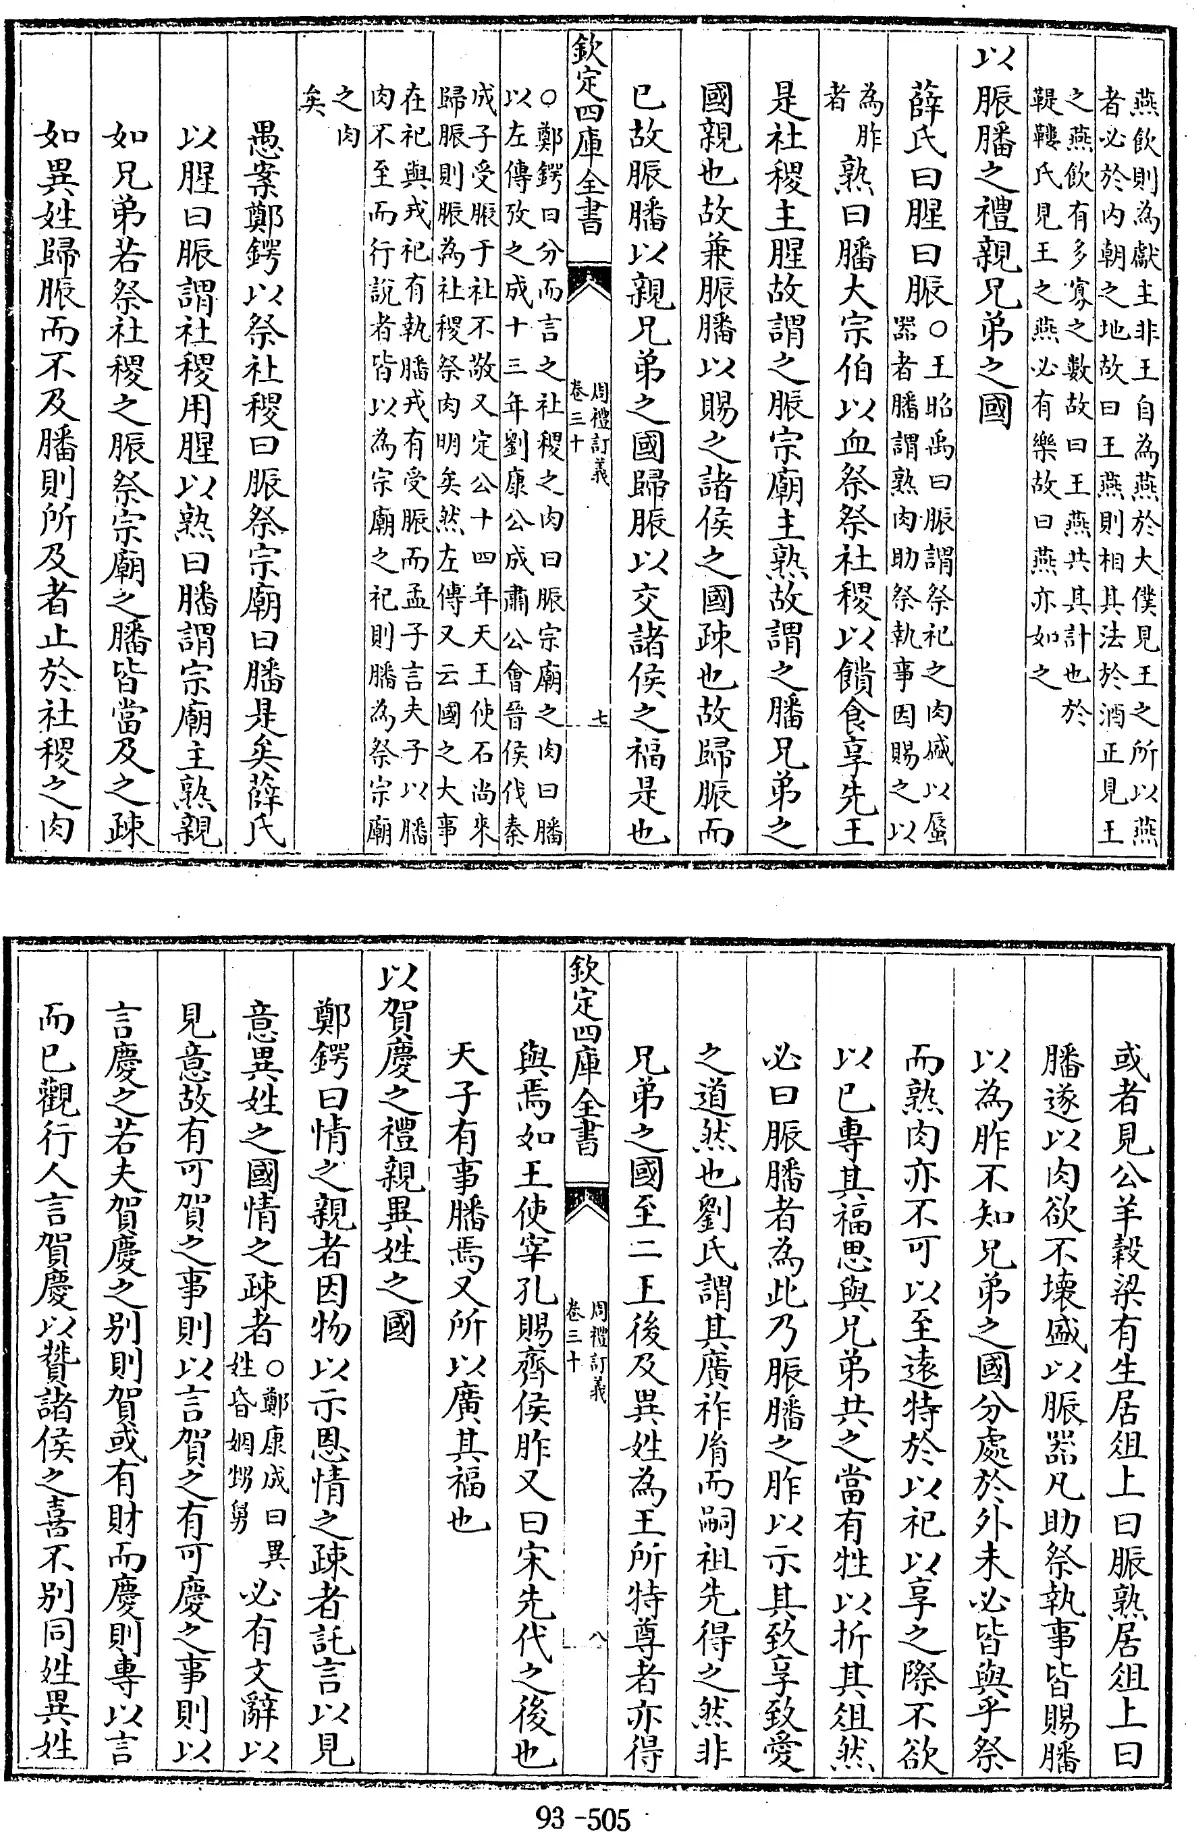 燕飲則為獻主非王自為燕於大僕見王之所以燕
者必於内朝之地故曰王燕則相其法於酒正見王
之燕飲有多寡之數故曰王燕共其計也於
鞮鞻氏見王之燕必有樂故曰燕亦如之
以脤膰之禮親兄弟之國
薛氏曰腥曰脤○王昭禹曰脤謂祭祀之肉盛以蜃
器者膰謂熟肉助祭執事因賜之以
為胙
者熟曰膰大宗伯以血祭祭社稷以饋食享先王
是社稷主腥故謂之脤宗廟主熟故謂之膰兄弟之
國親也故兼脤膰以賜之諸侯之國疎也故歸脤而
已故脤膰以親兄弟之國歸脤以交諸侯之福是也
欽定四庫全書
周禮訂義
卷三十
七
○鄭鍔曰分而言之社稷之肉曰脤宗廟之肉曰膰
以左傳攷之成十三年劉康公成肅公會晉侯伐秦
成子受脤于社不敬又定公十四年天王使石尚來
歸脤則脤為社稷祭肉明矣然左傳又云國之大事
在祀與戎祀有執膰戎有受脤而孟子言夫子以膰
肉不至而行說者皆以為宗廟之祀則膰為祭宗廟
之肉
矣
愚案鄭鍔以祭社稷曰脤祭宗廟曰膰是矣薛氏
以腥曰脤謂社稷用腥以熟曰膰謂宗廟主熟親
如兄弟若祭社稷之脤祭宗廟之膰皆當及之疎
如異姓歸脤而不及膰則所及者止於社稷之肉
或者見公羊穀梁有生居俎上曰脤熟居俎上曰
膰遂以肉欲不壊盛以脤器凡助祭執事皆賜膰
以為胙不知兄弟之國分處於外未必皆與乎祭
而熟肉亦不可以至遠特於以祀以享之際不欲
以已專其福思與兄弟共之當有牲以折其俎然
必曰脤膰者為此乃脤膰之胙以示其致享致愛
之道然也劉氏謂其廣祚胤而嗣祖先得之然非
兄弟之國至二王後及異姓為王所特尊者亦得
欽定四庫全書
周禮訂義
卷三十
八
與焉如王使宰孔賜齊侯胙又曰宋先代之後也
天子有事膰焉又所以廣其福也
以賀慶之禮親異姓之國
鄭鍔曰情之親者因物以示恩情之疎者託言以見
意異姓之國情之疎者○鄭康成曰異
姓昏姻甥舅
必有文辭以
見意故有可賀之事則以言賀之有可慶之事則以
言慶之若夫賀慶之别則賀或有財而慶則專以言
而已觀行人言賀慶以贊諸侯之喜不别同姓異姓
93-505